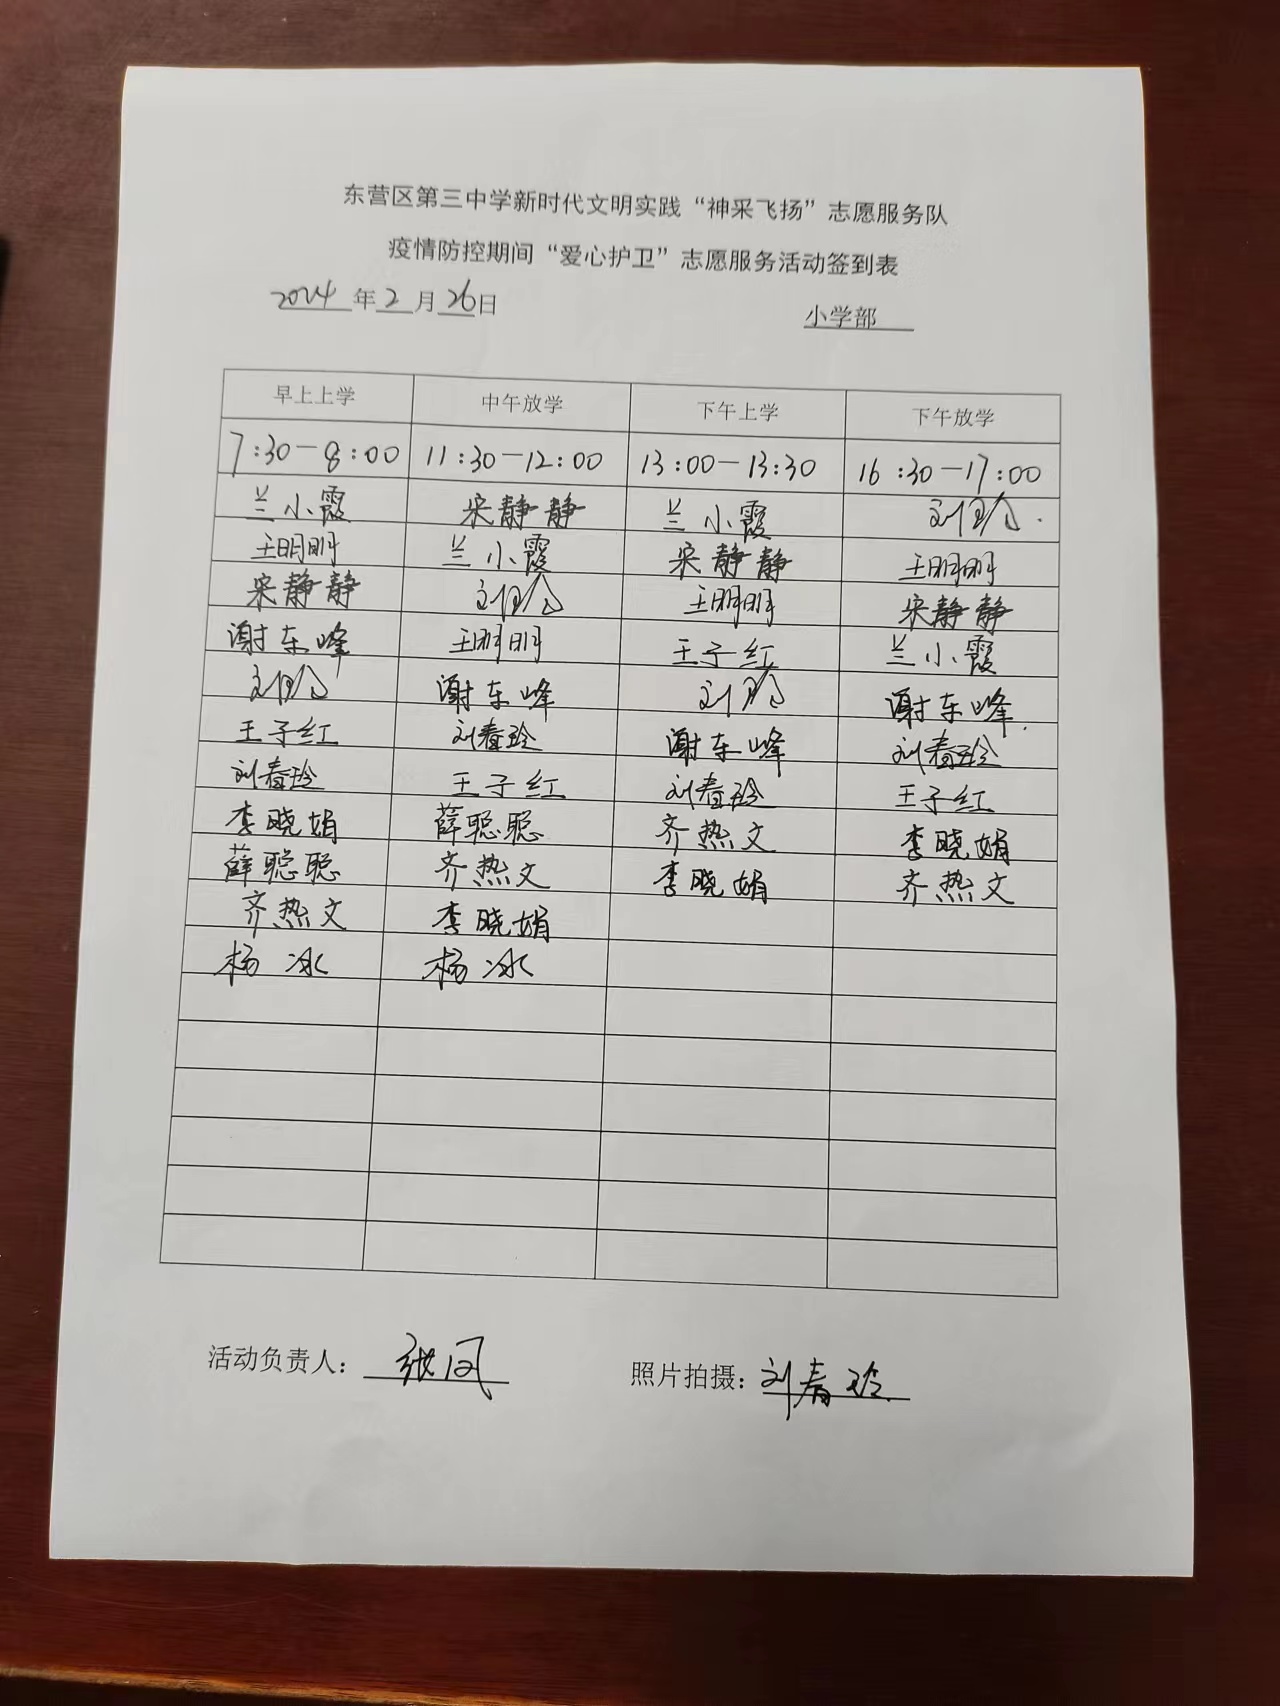 东营区第三中学新时代文明实践“神采飞扬”志愿服务队
疫情防控期间“爱心护卫”志愿服务活动签到表
2024年2月26日 小学部
早上上学 中午放学 下午上学 下午放学
7:30-8:00 11:30-12:00 13:00-13:30 16:30-17:00
兰小霞 宋静静 兰小霞 刘
王明明 兰小霞 宋静静 王明明
宋静静 刘 王明明 宋静静
谢东峰 王明明 王子红 兰小霞
刘 谢东峰 刘 谢东峰
王子红 刘春玲 谢东峰 刘春玲
刘春玲 王子红 刘春玲 王子红
李晓娟 薛聪聪 齐热文 李晓娟
薛聪聪 齐热文 李晓娟 齐热文
齐热文 李晓娟
杨冰 杨冰
活动负责人：张凤 照片拍摄：刘春玲